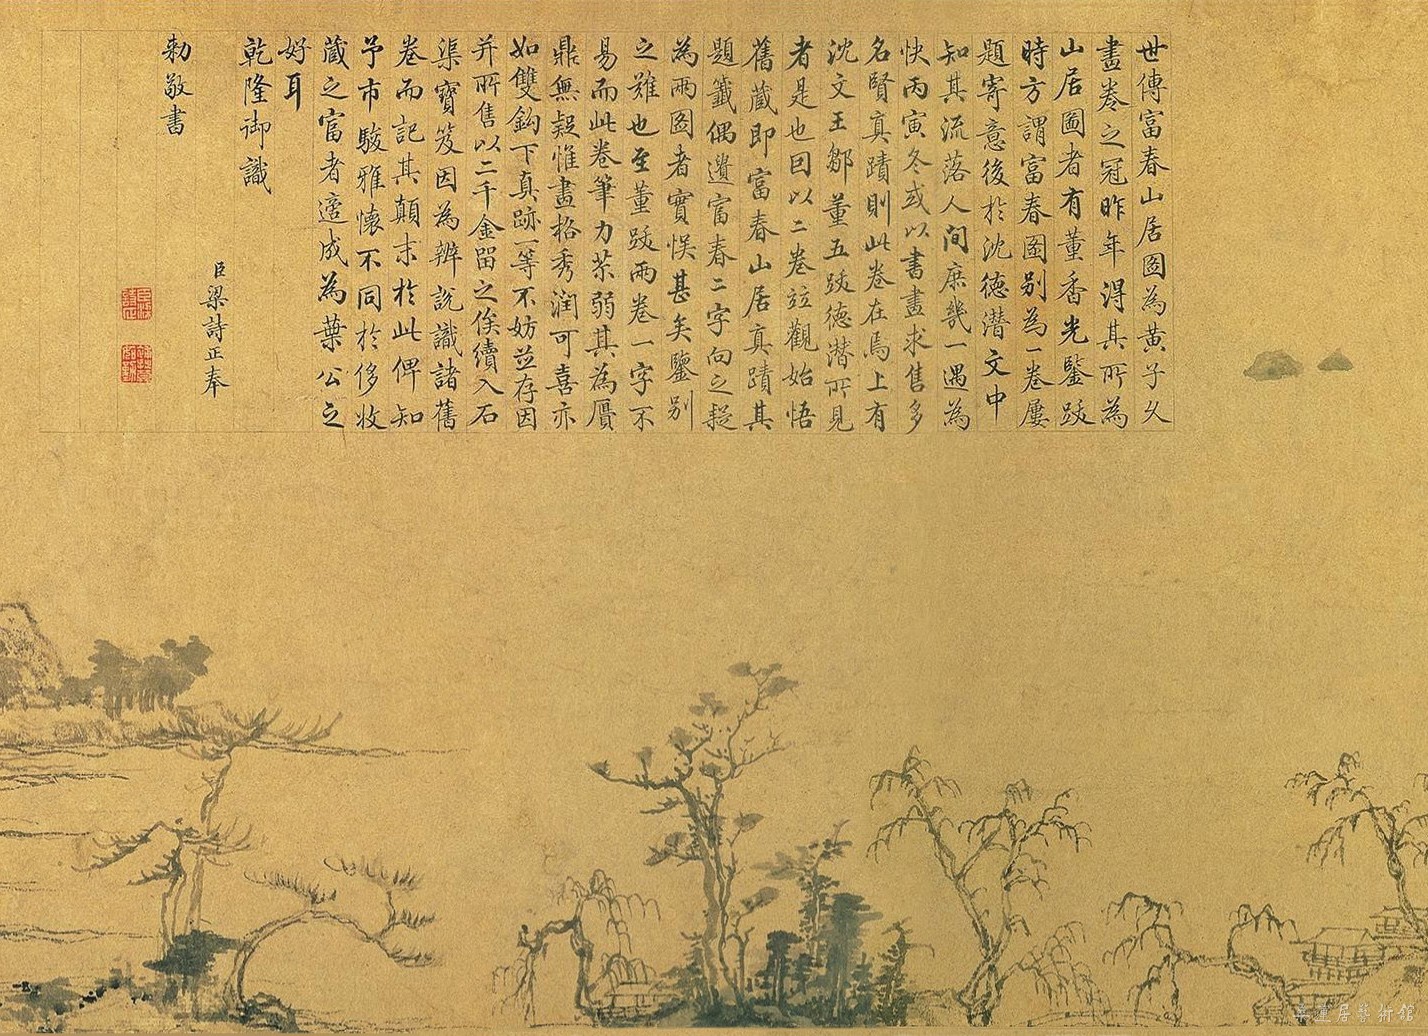 世傳富春山居圖為黃子久
畫卷之冠昨年得其所為
山居圖者有董香光鑒跋
時方謂富春圖别為一卷屢
題寄意後於沈德潛文中
知其流落人間庶幾一遇為
快丙寅冬或以書畫求售多
名賢真蹟則此卷在焉上有
沈文王鄒董五跋德潛所見
者是也因以二卷竝觀始悟
舊藏即富春山居真蹟其
題籤偶遺富春二字向之疑
為兩圖者實悞甚矣鑒别
之難也至董跋兩卷一字不
易而此卷筆力苶弱其為贋
鼎無疑惟畫格秀潤可喜亦
如雙鈎下真跡一等不妨並存因
并所售以二千金留之俟續入石
渠寶笈因為辨說識諸舊
卷而記其顛末於此俾知
予市駿雅懷不同於侈收
藏之富者適成為葉公之
好耳
乾隆御識
臣梁詩正奉
勅敬書